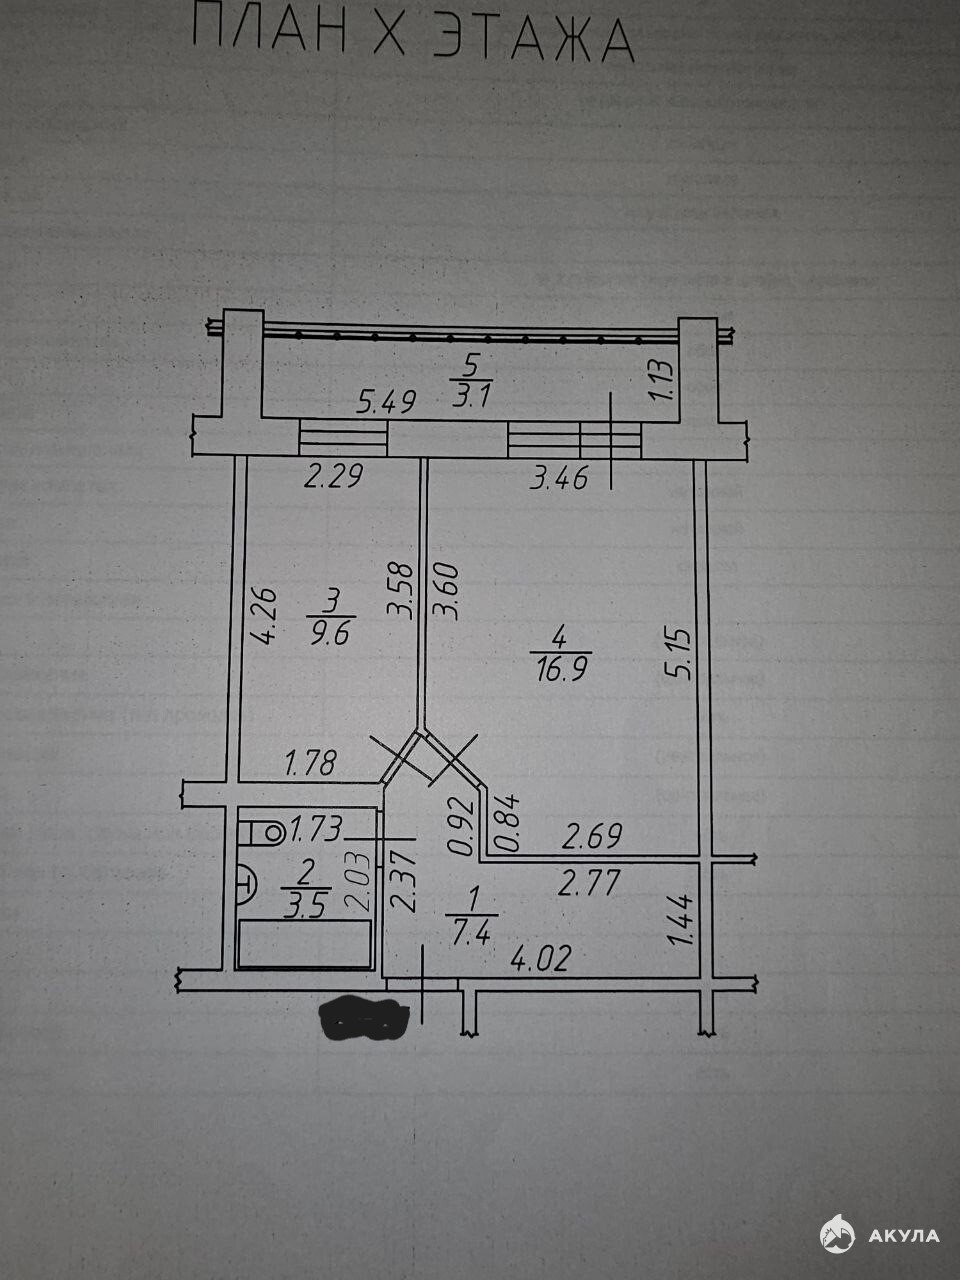 ПЛАН X ЭТАЖА
5
3.1
1.13
5.49
2.29
3.46
4.26
3
9.6
3.58
3.60
4
16.9
5.15
1.78
1.73
0.92
0.84
2.69
2.77
2
3.5
2.03
2.37
1
7.4
1.44
4.02
АКУЛА